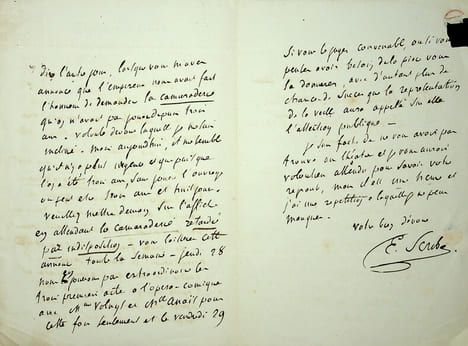 dire l'autre jour, lorsque vous m'avez
annoncé que l'empereur nous avait fait
l'honneur de demander la camaraderie
qu'on n'avait pas jouée depuis trois
ans. volonté devant laquelle je me suis
incliné. mais aujourd'hui, il me semble
qu'il n'y a plus urgence et que puisque
l'on a été trois ans, sans jouer l'ouvrage
on peut être trois ans et huit jours.
veuillez mettre demain sur l'affiche
en attendant la camaraderie retardée
par indisposition - vous laisserez cette
annonce toute la semaine - jeudi 28
nous jouerons par extraordinaire les
trois premiers actes à l'opéra-comique
avec Mme Volnys et Melle Anaïs pour
cette fois seulement et le vendredi 29
Si vous le jugez convenable, ou si vous
pensez avoir besoin de la pièce vous
la donnerez, avec d'autant plus de
chance de succès que la représentation
de la veille aura appelé sur elle
l'attention publique -
je suis fâché de ne vous avoir pas
trouvé au théâtre et je vous aurais
volontiers attendu pour savoir votre
réponse, mais il est une heure et
j'ai une répétition à laquelle je ne peux
manquer -
votre bien dévoué
E. Scribe